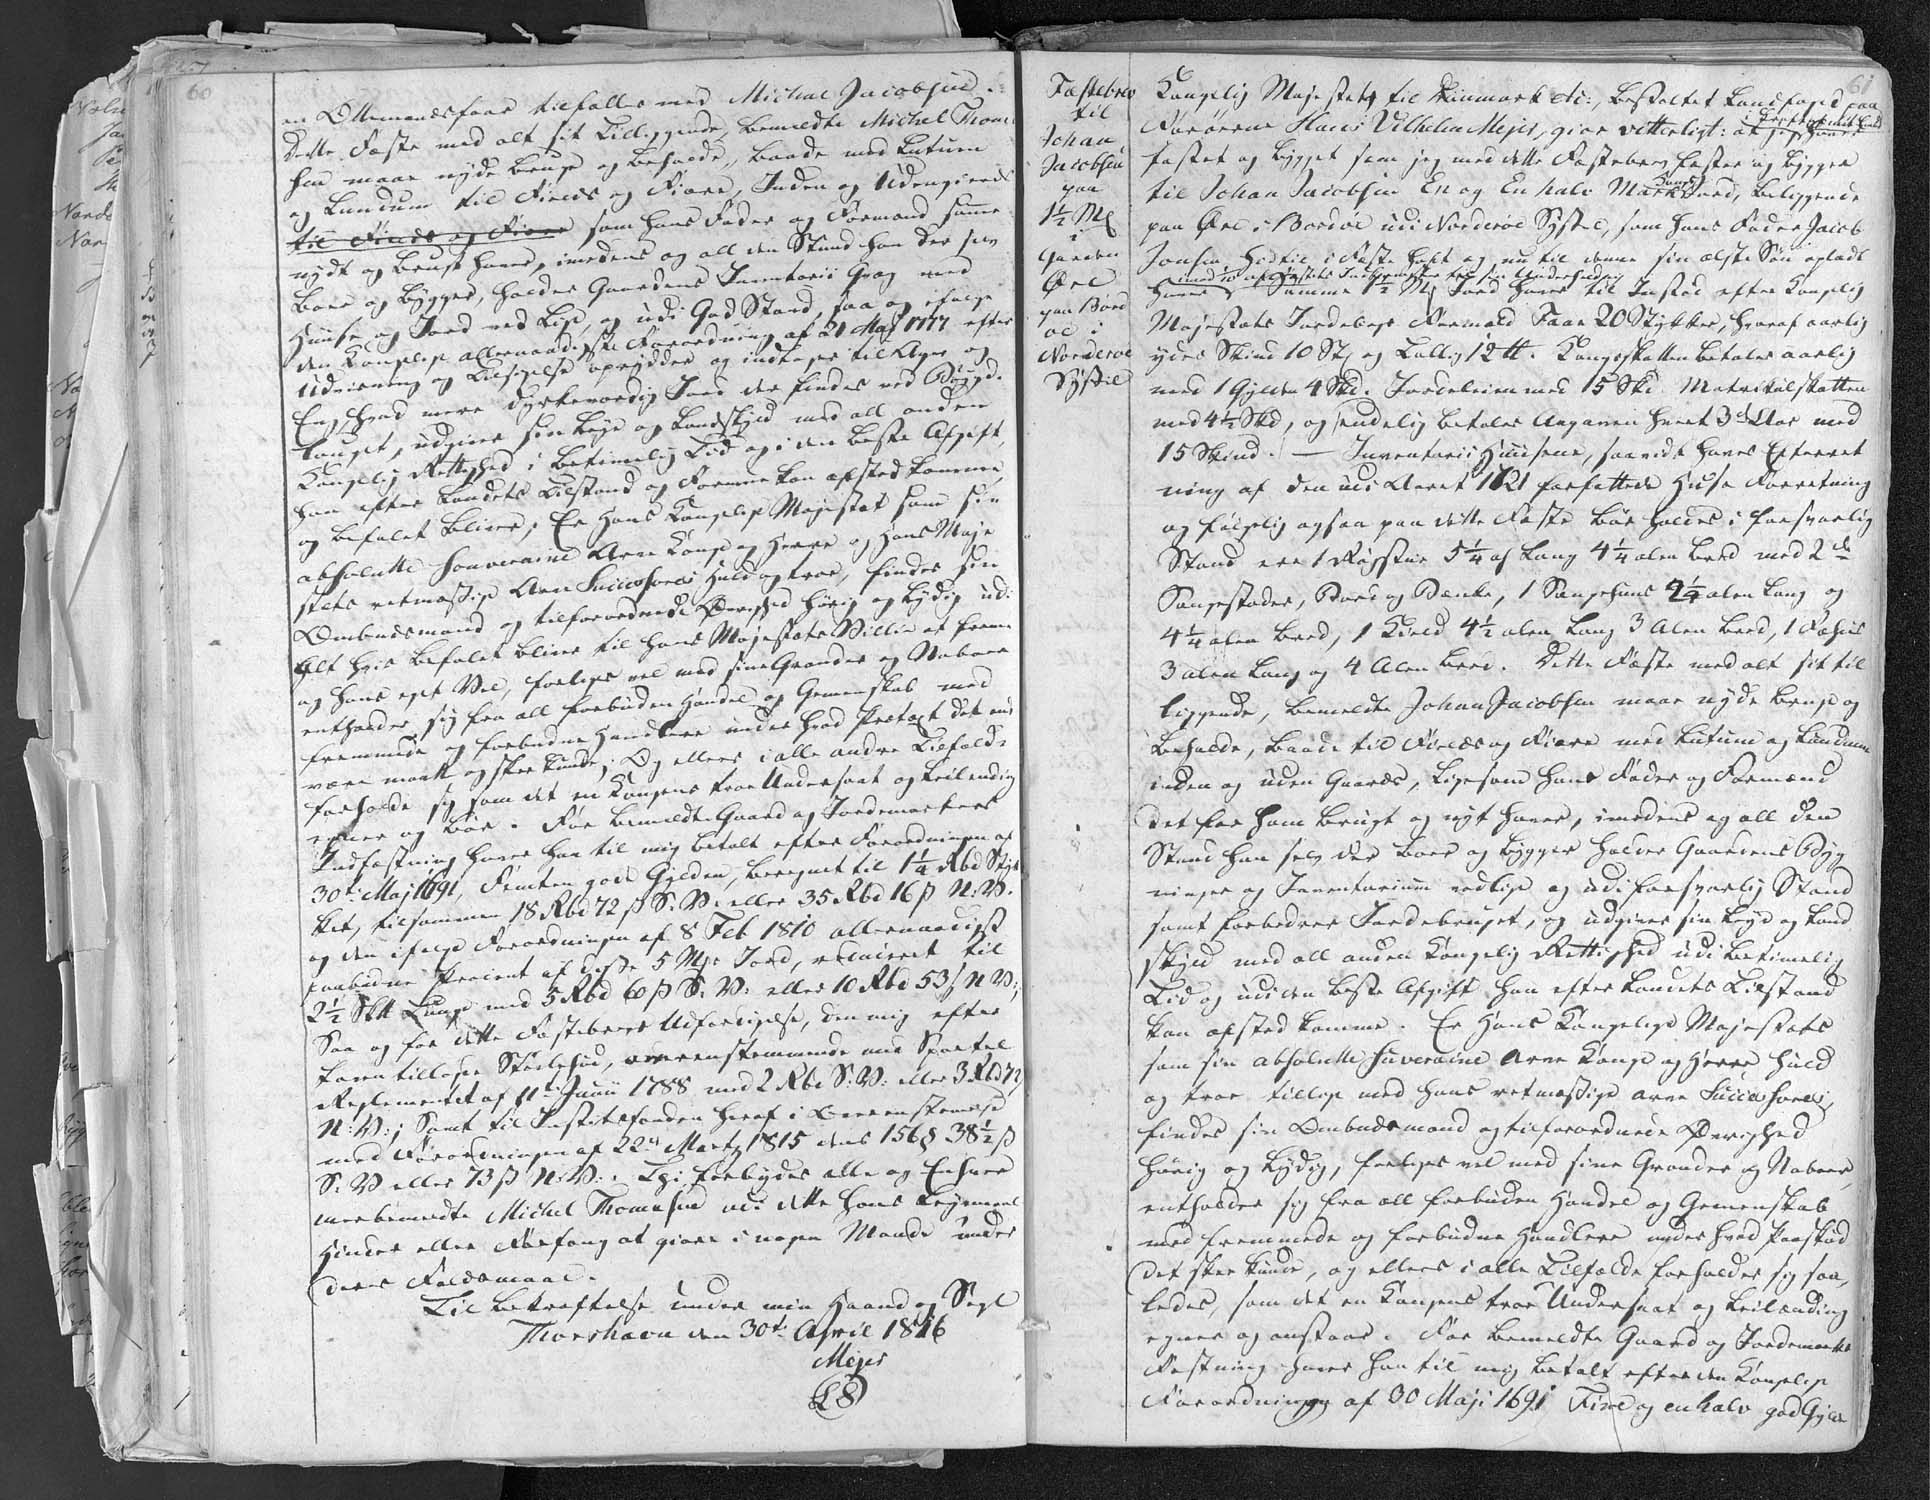 60
en Ottemandsfaar tilfalles med Michal Jacobsen.
Dette Fæste med alt sit Tilliggende, bemeldte Michel Thom
sen maae nyde bruge og beholde, baade med Lutum
og Lundum til Fields og Fiære, Inden og Udengierds
til Fields og Fiære som hans Fader og Formænd samme
nydt og brugt haver, imedens og all den Stund han der selv
boer og bygger, holder Gaardens Inventarii Grag med
Huuse og Jord ved Lige, og udi God Stand, saa og efter
den Kongelige allernaadigste Forordning af 21 Maj 1777 efter
Udviisning og Tilsigelse oprydder og indtager til Ager og
Eng, hvad mere dyrkeværdig Jord der findes ved Bøygd.
lauget, udgiver sin Leye og Landskyld med all anden
Kongelig Rettighed i betimelig Tid og i den beste Afgift
han efter Landets Tilstand og Formue kan afsted komme
og befalet bliver; Er Hans Kongelige Majestæt som sin
absolutte souveraine Arve Konge og Herre og Hans Maje
stæts retmæssige Arve Successores huld og troe, findes sin
Ombudsmand og tilforordnede Øvrighed hørig og lydig udi
Alt hvis befalet bliver til Hans Majestæts Villie at frem
og hans eget Vel, foeliges vel med sine Grander og Naboer
entholder sig fra all forbuden Handel og Gemenskab med
fremmede og forbudne Handlere under hvad Prætext det end
være maatte og skee kunde; Og ellers i alle andre Tilfælde
forholde sig som det en Kongens troe Undersaat og Leilending
egner og bør. For bemeldte Gaard og Jordemarkers
Indfæstning haver han til mig betalt efter Forordningen af
30te Maj 1691, Femten gode Gylden, beregnet til 1¼ Rbd Styk
ket, tilsammen 18 Rbd 72 ß S: V: eller 35 Rbd 16 ß N: V:
og den ifølge Forordningen af 8 Feb 1810 allernaadigst
paabudne Procent af disse 5 Mrk Jord, reduceret til
2½ Skk Lange med 5 Rbd 60 ß S: V: eller 10 Rbd 53 ß N V:,
Saa og for dette Fæstebrevs Udfærdigelse, den mig efter
Loven tillagte Skødeløn, overeenstemmende med Sportel
Reglementet af 11te Junii 1788 med 2 Rbd S: V: eller 3 Rbd 72
N: V:; Samt til Justitsfonden heraf i Overenstemmelse
med Forordningen af 22de Martz 1815 dens 156 § 38½ ß
S: V eller 73 ß N: V:. Thi forbydes alle og Enhver
meerbemeldte Michel Thomesen udi dette hans Leyemaal
Hinder eller Forfang at giøre i nogen Maade under
deres Faldsmaal.
Til Bekræftelse under min Haand og Segl
Thorshavn den 30te April 1816
Mejer
LS
61
Fæstebrev
til
Johan
Jacobsen
paa
1½ Mk
i
Gaarden
Øre
paa Bord
øe i
Norderøe
Syssel
Kongelig Majestæts til Dannmark etc:, bestaltet Landfoged paa
Færøerne Hans Vilhelm Mejer, giør vitterligt: at jeg haver
fæstet og bygget som jeg med dette Fæstebrev fæster og bygger
til Johan Jacobsen En og En halv Mark Jord, beliggende
paa Øre i Bordøe udi Norderøe Syssel, som hans Fader Jacob
Jonsen hidtil i Fæste haft og nu til denne sin ælste Søn opladt
haver Samme 1½ Mk Jord haver til Indstød efter Kongelig
Majestæts Jordebogs Formeld Faar 20 Stykker, hvoraf aarlig
ydes Skind 10 Stk og Tallig 12 tt. Kongsskatten betales aarlig
med 1 Gylden 4 Skd. Jordeleien med 15 Skd Matrikulskatten
med 4½ Skd, og endelig betales Angaven hvert 3die Aar med
15 Skind. — Inventarii Huusene, saavidt haves Efterret
ning af den udi Aaret 1721 forfattede Huse Forretning
og følgelig ogsaa paa dette Fæste bør holdes i forsvarlig
Stand ere 1 Røgstue 5¼ al lang 4¼ alen bred med 2de
Sengesteder, Bord og Bænke, 1 Sengehuus 4¼ alen lang og
4¼ alen bred, 1 Kield 4½ alen lang 3 Alen bred, 1 Fæhus
3 alen lang og 4 Alen bred. Dette Fæste med alt sit til
liggende, bemeldte Johan Jacobsen maae nyde bruge og
beholde, baade til Fields og Fiære med Lutum og Lundum
inden og uden Gaards, ligesom hans Fader og Formænd
det før ham brugt og nyt haver, imedens og all den
Stund han selv der boer og bygger holder Gaardens Byg
ninger og Inventarium vedlige og udi forsvarlig Stand
samt forbedrer Jordebruget, og udgiver sin Leye og Land
skyld med all anden Kongelig Rettighed udi betimelig
Tid og udi den beste Afgift han efter Landets Tilstand
kan afsted komme. Er Hans Kongelige Majestæts
som sin absolutte suveraine Arve Konge og Herre huld
og troe tillige med hans retmæssige arve Successores,
findes sin Ombudsmand og tilforordnede Øvrighed
hørig og lydig, foeliges vel med sine Grander og Naboer,
entholder sig fra all forbuden Handel og Gemenskab
med fremmede og forbudne Handlere under hvad Paaskud
det skee kunde, og ellers i alle Tilfælde forholder sig saa
ledes, som det en Kongens troe Undersaat og Leilending
egner og anstaar. For bemeldte Gaard og Jordemarks
Fæstning haver han til mig betalt efter den Kongelige
Forordning af 30 Maji 1691 Fire og en halv god Gyld